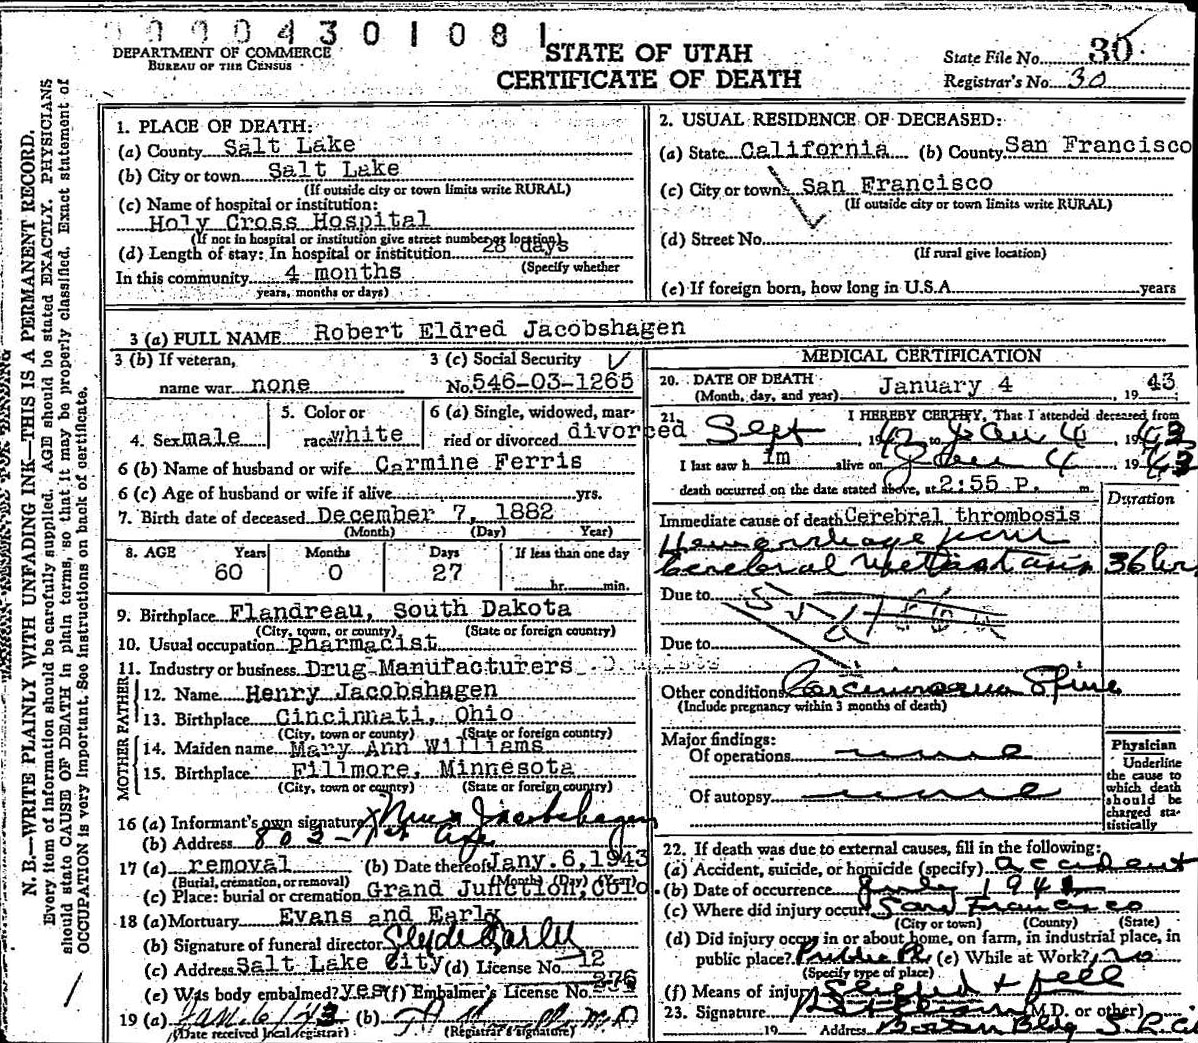 00004301081
DEPARTMENT OF COMMERCE
BUREAU OF THE CENSUS
STATE OF UTAH
CERTIFICATE OF DEATH
State File No. 30
Registrar's No. 30
N. B.—WRITE PLAINLY WITH UNFADING INK—THIS IS A PERMANENT RECORD.
Every item of information should be carefully supplied. AGE should be stated EXACTLY. PHYSICIANS
should state CAUSE OF DEATH in plain terms, so that it may be properly classified. Exact statement of
OCCUPATION is very important. See instructions on back of certificate.
1. PLACE OF DEATH:
(a) County Salt Lake
(b) City or town Salt Lake
(If outside city or town limits write RURAL)
(c) Name of hospital or institution:
Holy Cross Hospital
(If not in hospital or institution give street number or location)
(d) Length of stay: In hospital or institution 28 days
(Specify whether
In this community 4 months
years, months or days)
2. USUAL RESIDENCE OF DECEASED:
(a) State California (b) County San Francisco
(c) City or town San Francisco
(If outside city or town limits write RURAL)
(d) Street No.
(If rural give location)
(e) If foreign born, how long in U.S.A. years
3 (a) FULL NAME Robert Eldred Jacobshagen
3 (b) If veteran, name war none
3 (c) Social Security No. 546-03-1265
4. Sex male
5. Color or race white
6 (a) Single, widowed, married or divorced divorced
6 (b) Name of husband or wife Carmine Ferris
6 (c) Age of husband or wife if alive yrs.
7. Birth date of deceased December 7, 1882
(Month) (Day) Year)
8. AGE Years Months Days If less than one day
60 0 27 hr. min.
9. Birthplace Flandreau, South Dakota
(City, town, or county) (State or foreign country)
10. Usual occupation pharmacist
11. Industry or business Drug Manufacturers
FATHER
12. Name Henry Jacobshagen
13. Birthplace Cincinnati, Ohio
(City, town or county) (State or foreign country)
MOTHER
14. Maiden name Mary Ann Williams
15. Birthplace Fillmore, Minnesota
(City, town or county) (State or foreign country)
16 (a) Informant's own signature X Jacobshagen
(b) Address 803 - 1st Ave
17 (a) removal (b) Date thereof Jany. 6, 1943
(Burial, cremation, or removal) (Month) (Day) (Year)
(c) Place: burial or cremation Grand Junction, Colo.
18 (a) Mortuary Evans and Early
(b) Signature of funeral director Clyde Early
(c) Address Salt Lake City (d) License No. 12
(e) Was body embalmed? yes (f) Embalmer's License No. 276
19 (a) Jan. 6/43 (b)
(Date received local registrar) (Registrar's signature)
MEDICAL CERTIFICATION
20. DATE OF DEATH January 4 , 1943
(Month, day, and year)
21. I HEREBY CERTIFY, That I attended deceased from
Sept , 1942 to Jan 4 , 1943
I last saw him alive on Jan 4 , 1943
death occurred on the date stated above, at 2:55 P. m
Duration
Immediate cause of death Cerebral thrombosis
Hemorrhage from
Cerebral Metastasis 36 hrs
Due to
Due to
Other conditions Carcinoma Spine
(Include pregnancy within 3 months of death)
Major findings:
Of operations none
Of autopsy none
Physician
Underline
the cause to
which death
should be
charged sta-
tistically
22. If death was due to external causes, fill in the following:
(a) Accident, suicide, or homicide (specify) accident
(b) Date of occurrence
(c) Where did injury occur San Francisco
(City or town) (County) (State)
(d) Did injury occur in or about home, on farm, in industrial place, in
public place? Public Pl. (e) While at Work? no
(Specify type of place)
(f) Means of injury Slipped + fell
23. Signature (M.D. or other)
19 Address Boston Bldg S. L. Ci